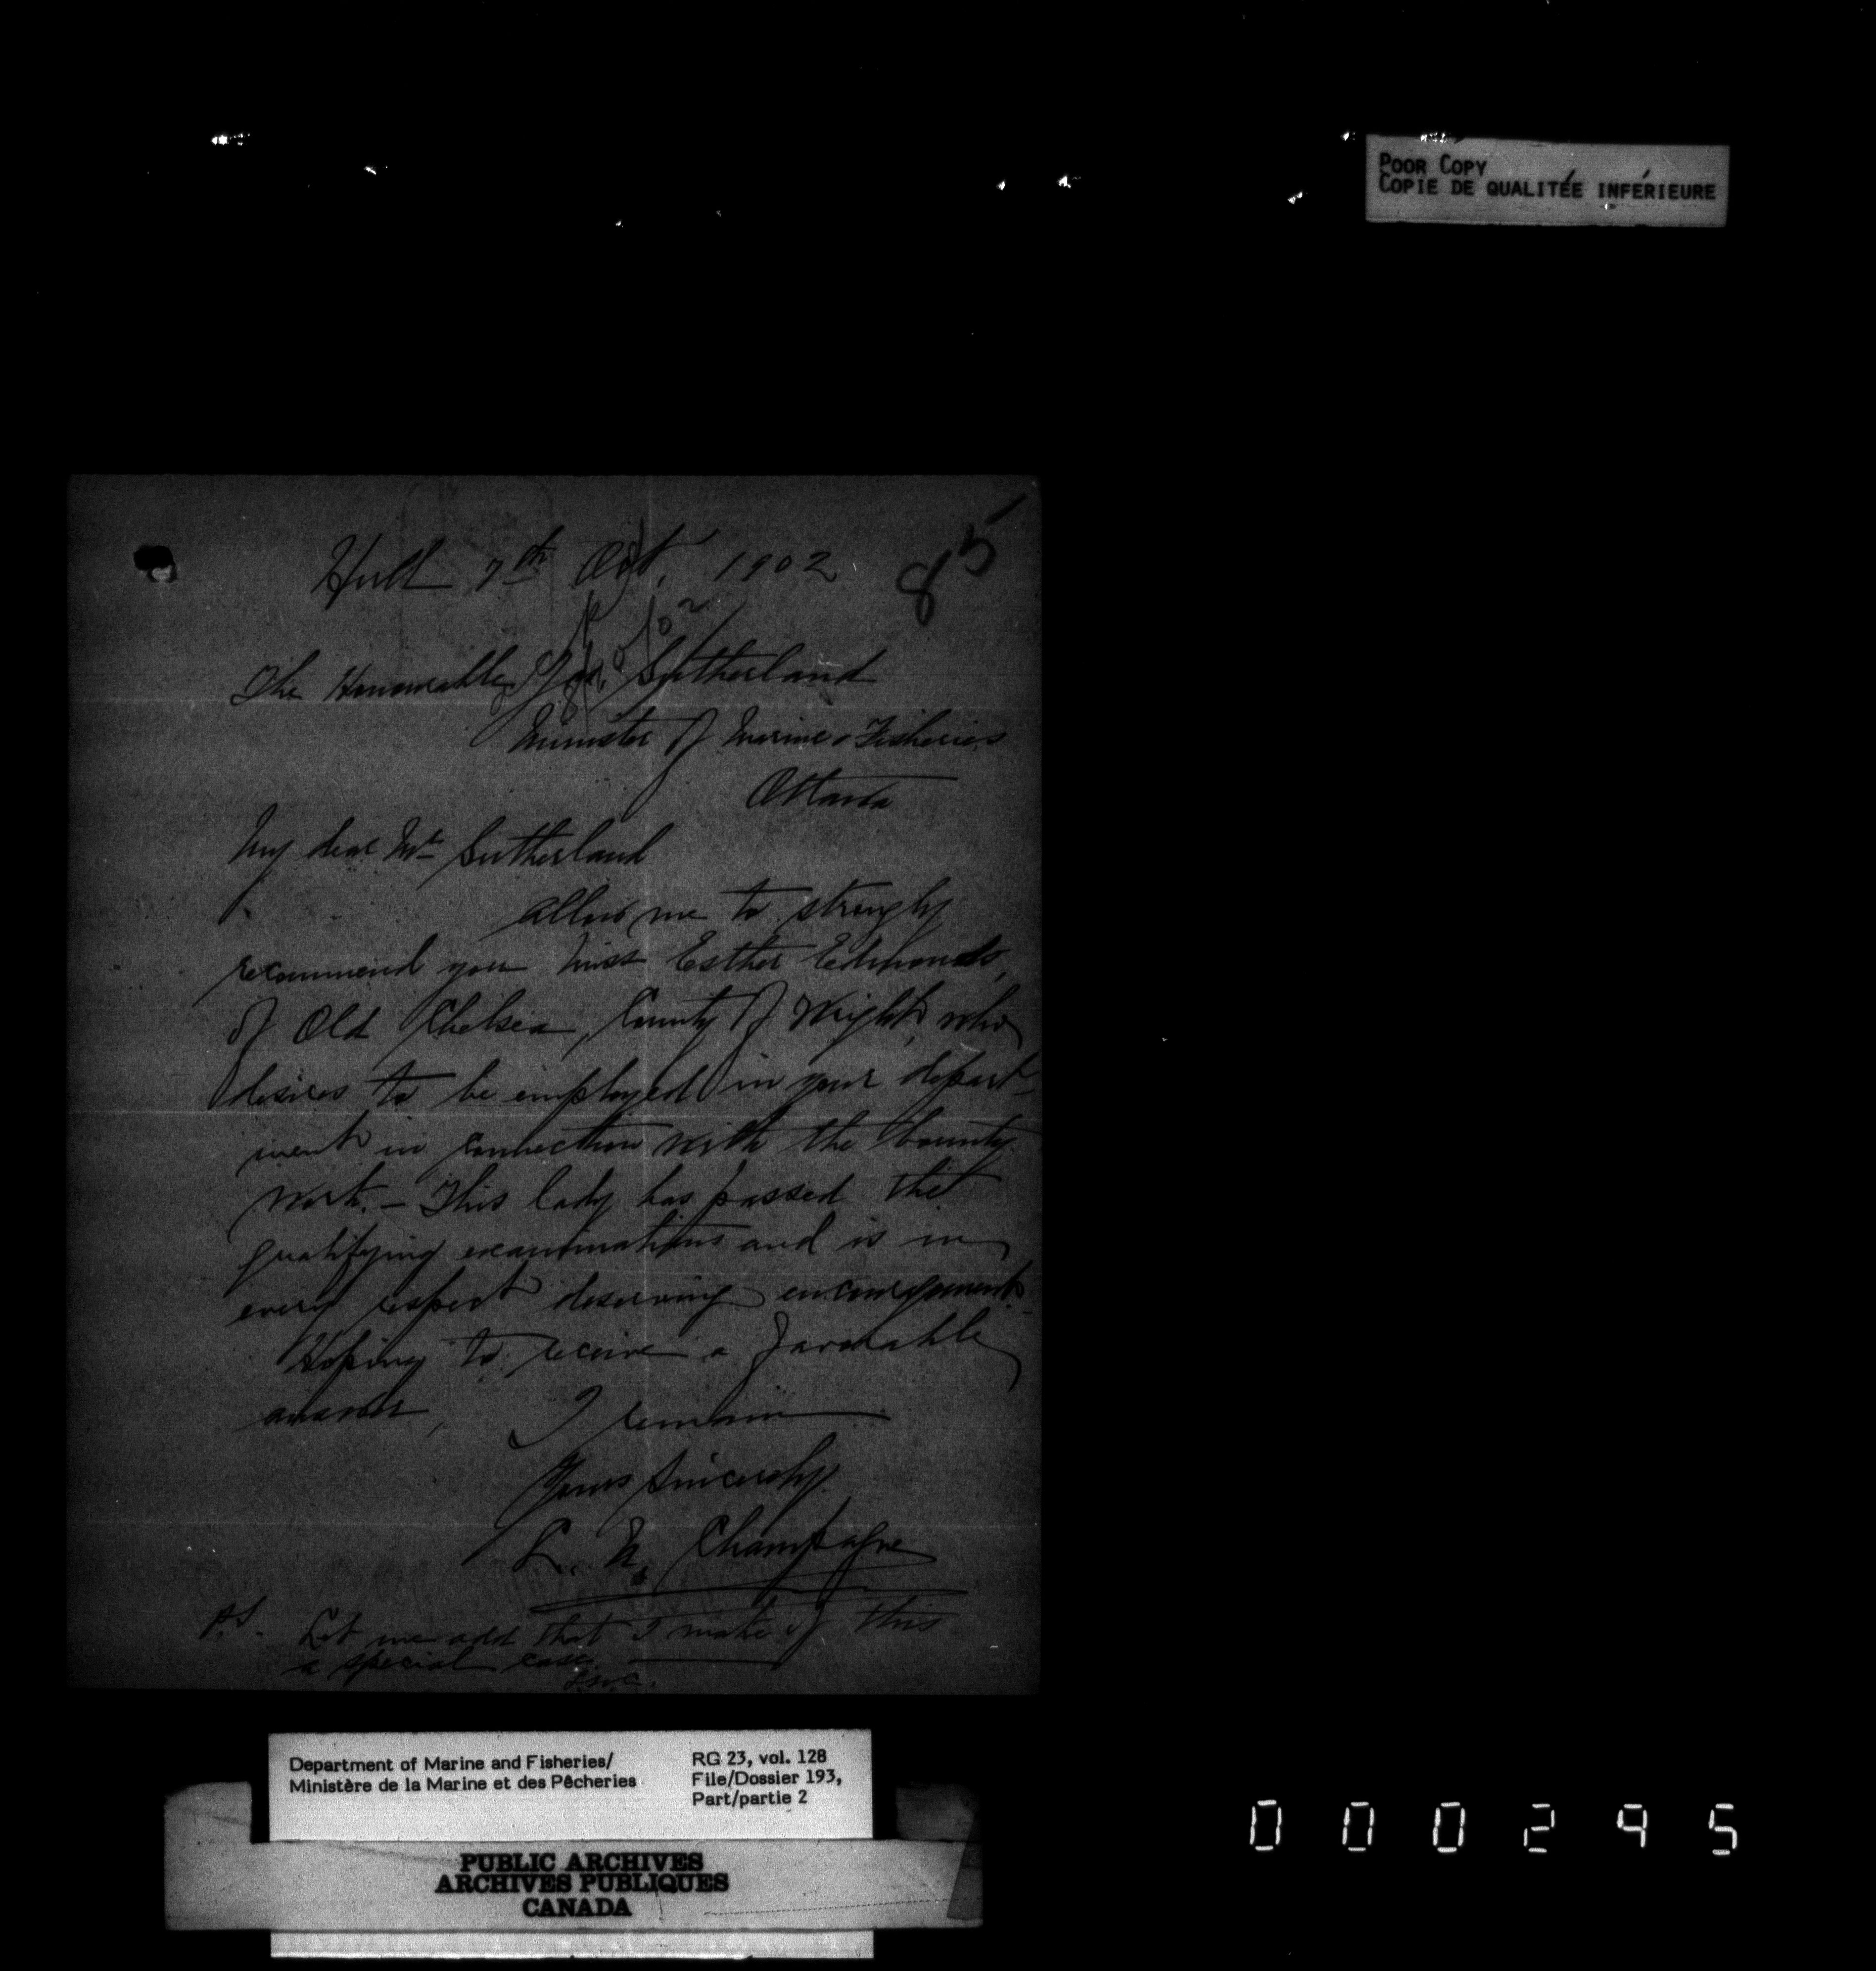 POOR COPY
COPIE DE QUALITÉE INFÉRIEURE
85
Hull 7th Oct. 1902
The Honourable Jas. Sutherland
Minister of Marine & Fisheries
Ottawa
My dear Mr Sutherland
Allow me to strongly
recommend you Miss Esther Edmonds,
of Old Chelsea, County of Wright, who
desires to be employed in your depart-
ment in connection with the bounty
work. - This lady has passed the
qualifying examinations and is in
every respect deserving encouragement.
Hoping to receive a favorable
answer, I remain
Yours Sincerely
L. N. Champagne
P.S. Let me add that I make of this
a special case.
L.N.C.
Department of Marine and Fisheries/
Ministère de la Marine et des Pêcheries
RG 23, vol. 128
File/Dossier 193,
Part/partie 2
PUBLIC ARCHIVES
ARCHIVES PUBLIQUES
CANADA
000295